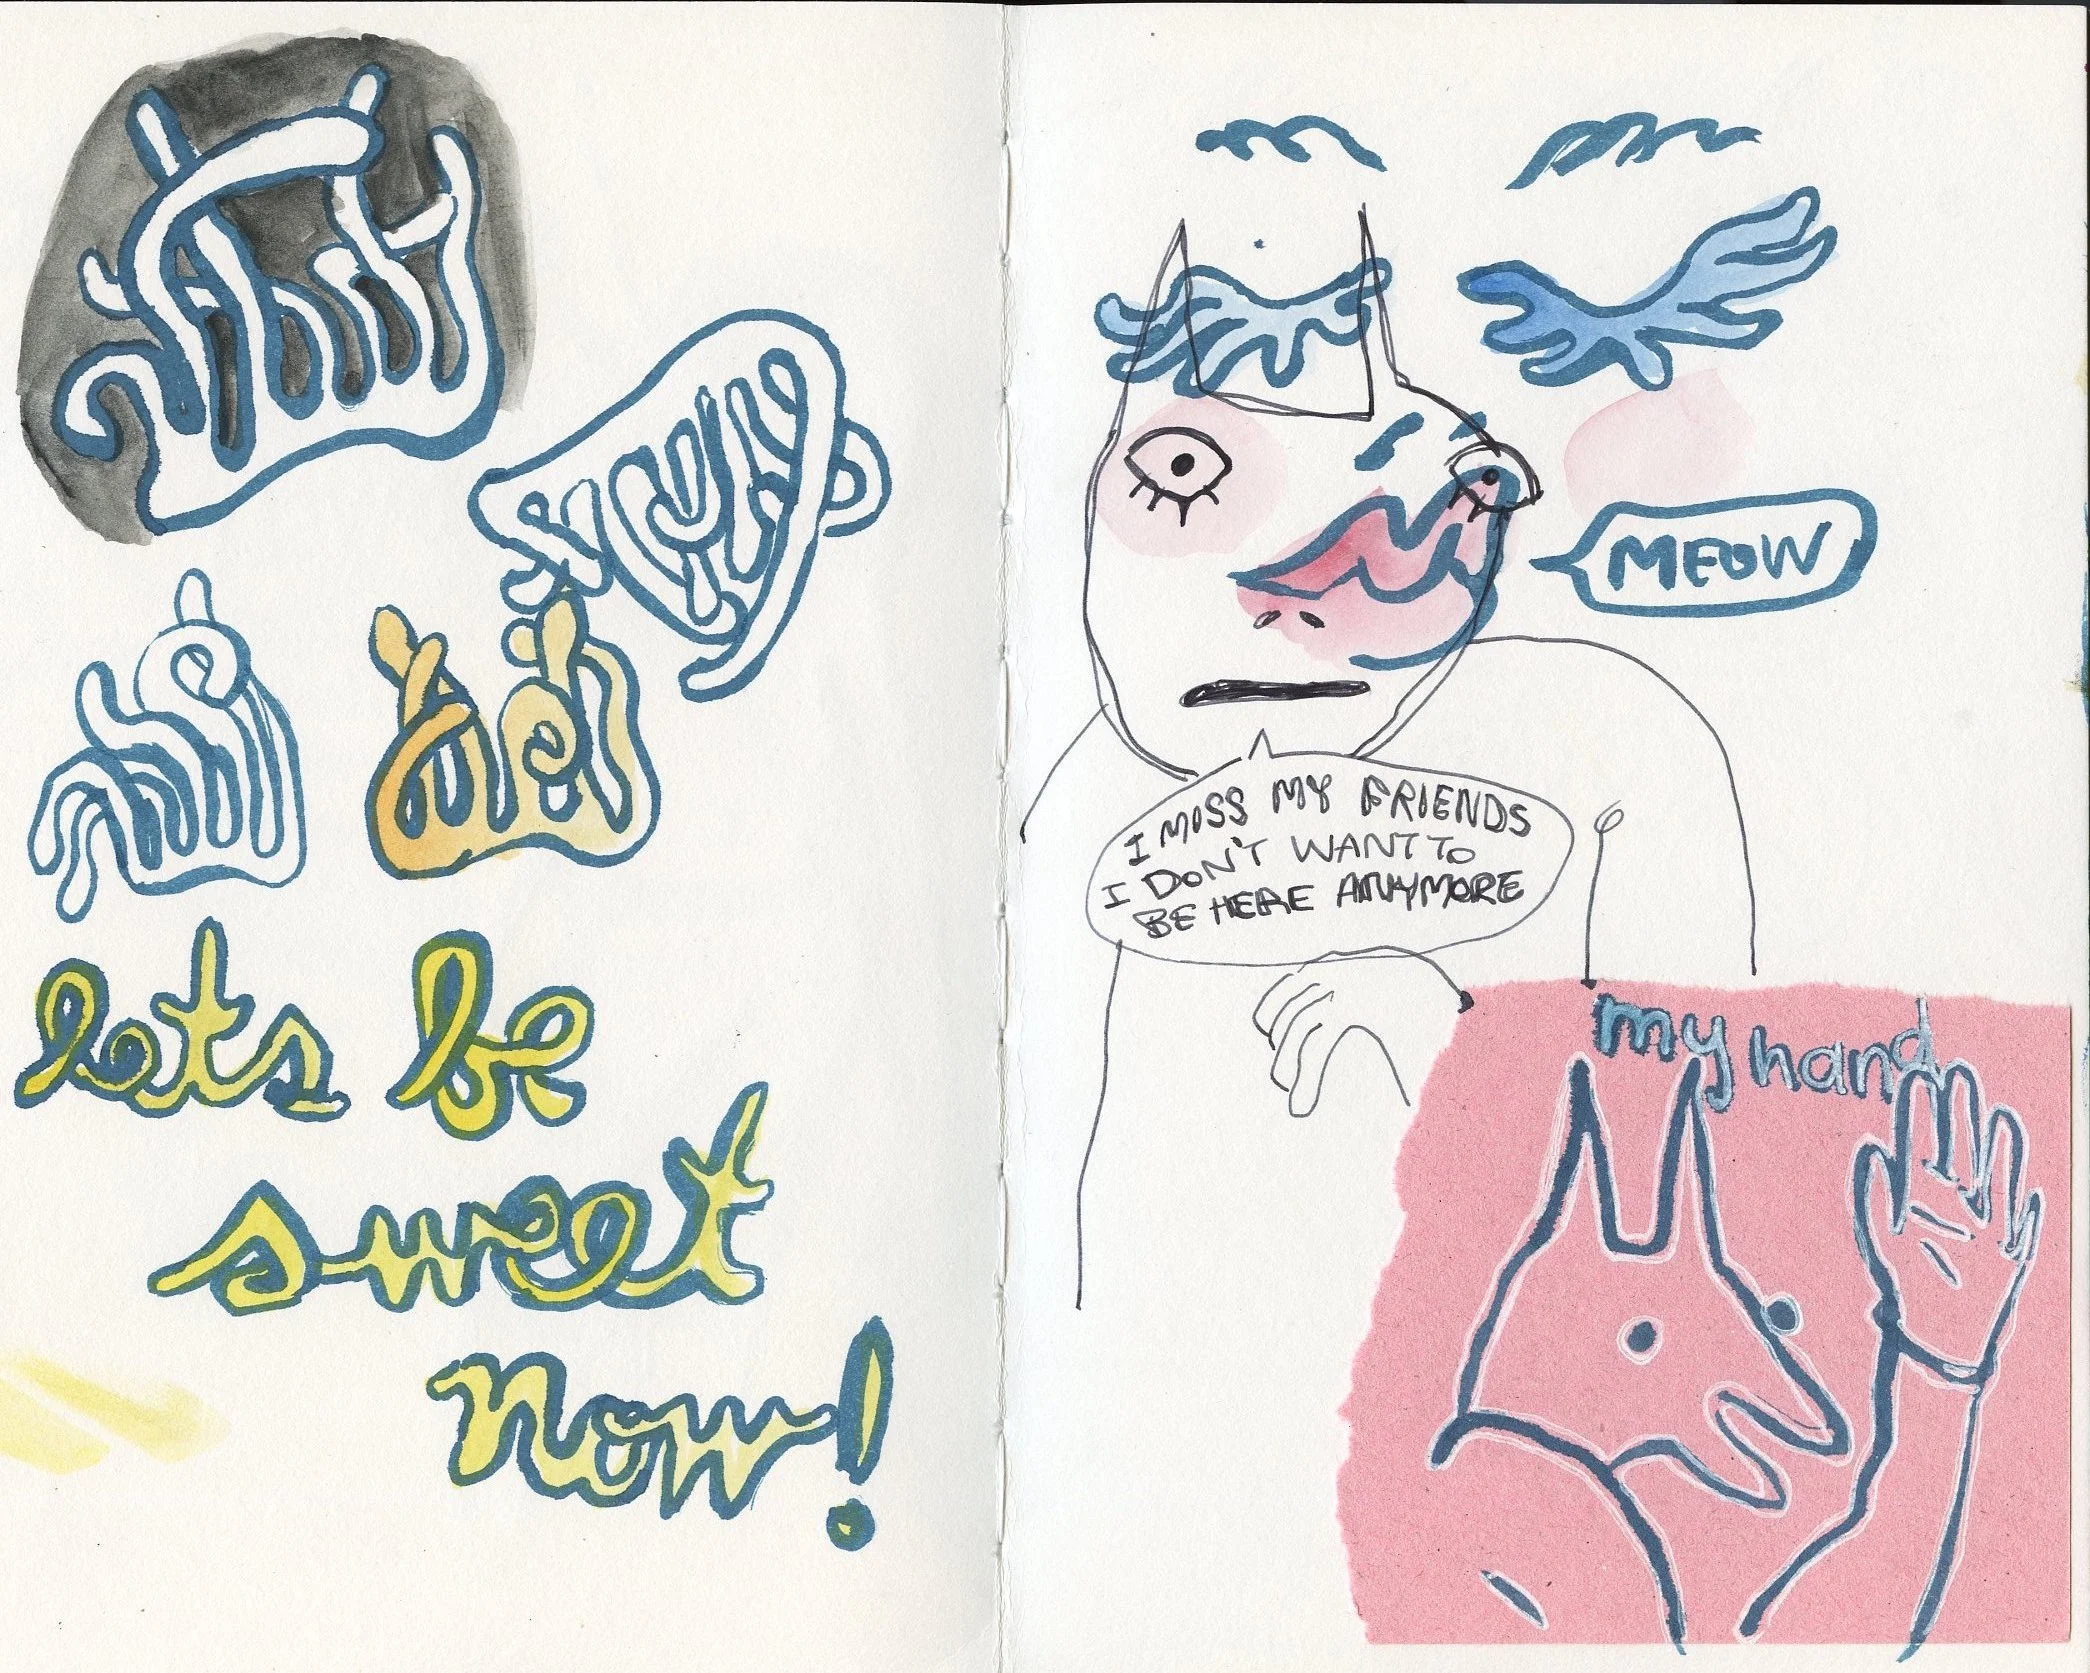 lets be
sweet
now!
MEOW
I MISS MY FRIENDS
I DON'T WANT TO
BE HERE ANYMORE
my hand